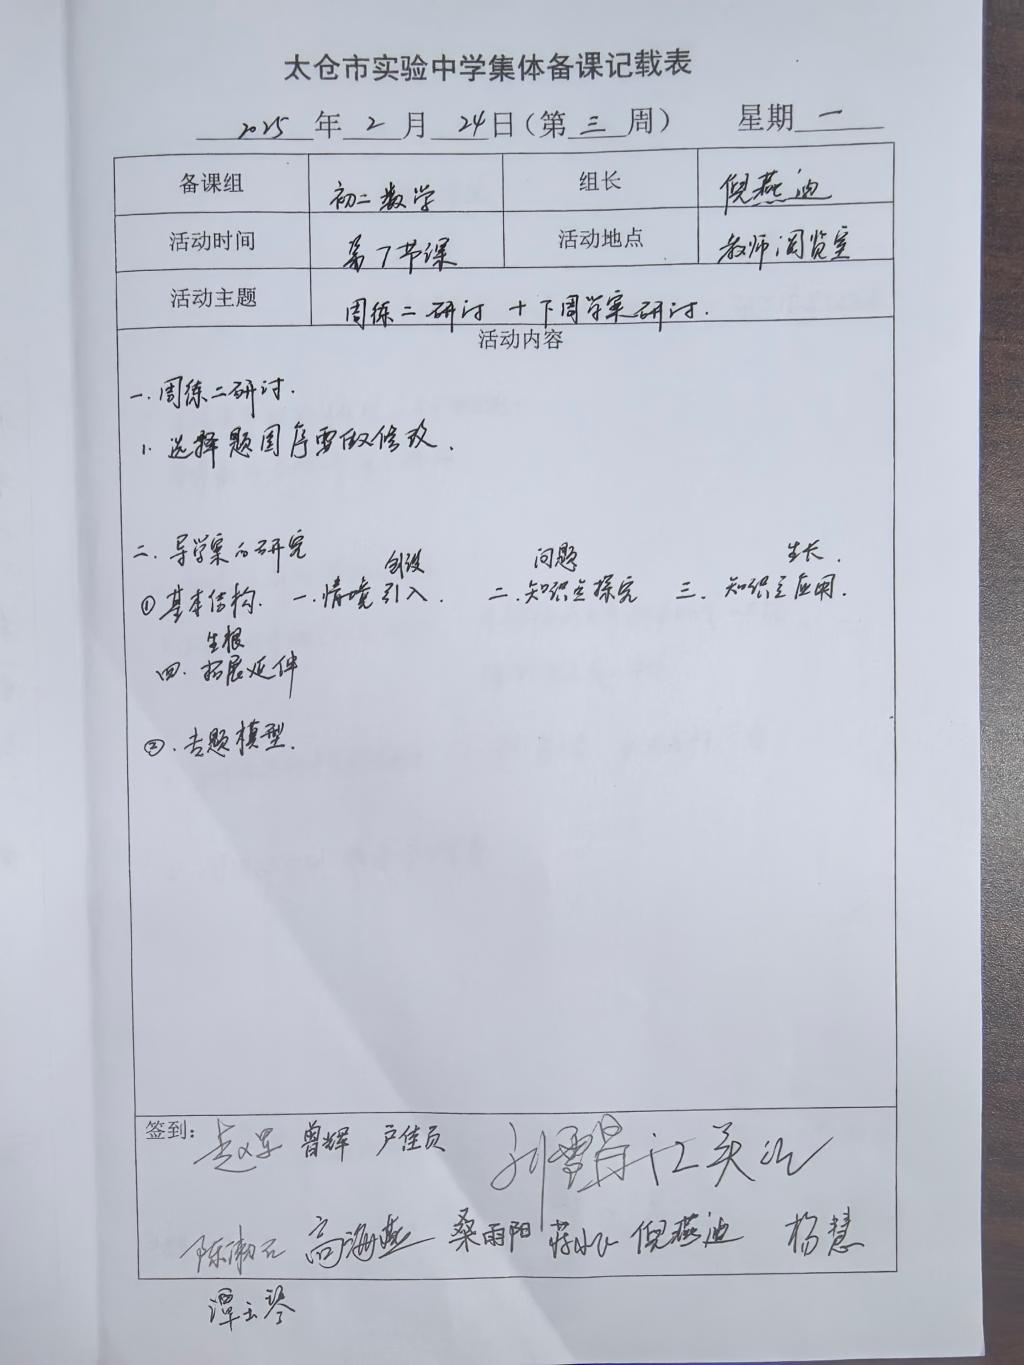 太仓市实验中学集体备课记载表
2025 年 2 月 24 日（第 三 周） 星期 一
备课组 初二数学 组长 倪燕迪
活动时间 第7节课 活动地点 教师阅览室
活动主题 周练二研讨 + 下周学案研讨.
活动内容
一. 周练二研讨.
1. 选择题图序要做修改.
二. 导学案的研究
创设 问题 生长.
① 基本结构. 一. 情境引入. 二. 知识点探究 三. 知识点应用.
生根
四. 拓展延伸
②. 专题模型.
签到: 赵军 曾辉 卢佳员
高海燕 桑雨阳 倪燕迪 杨慧
谭玉琴